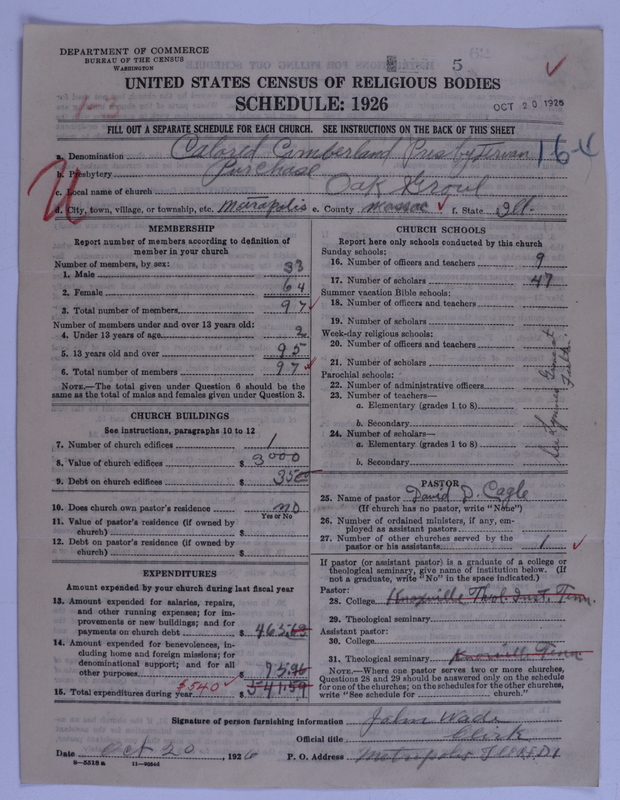 DEPARTMENT OF COMMERCE
BUREAU OF THE CENSUS
WASHINGTON
5
UNITED STATES CENSUS OF RELIGIOUS BODIES
SCHEDULE: 1926
OCT 20 1926
1-3
FILL OUT A SEPARATE SCHEDULE FOR EACH CHURCH. SEE INSTRUCTIONS ON THE BACK OF THIS SHEET
a. Denomination Calored Cumberland Presbyterian 16-4
b. Presbytery Purchase
c. Local name of church Oak Grove
d. City, town, village, or township, etc. Metropolis e. County Massac f. State Ill.
MEMBERSHIP
Report number of members according to definition of
member in your church
Number of members, by sex:
1. Male 33
2. Female 64
3. Total number of members 97
Number of members under and over 13 years old:
4. Under 13 years of age 2
5. 13 years old and over 95
6. Total number of members 97
NOTE.—The total given under Question 6 should be
same as the total of males and females given under Question 3.
CHURCH BUILDINGS
See instructions, paragraphs 10 to 12
7. Number of church edifices 1
8. Value of church edifices $ 3000
9. Debt on church edifices $ 350
10. Does church own pastor's residence no
Yes or No
11. Value of pastor's residence (if owned by
church) $
12. Debt on pastor's residence (if owned by
church) $
EXPENDITURES
Amount expended by your church during last fiscal year
13. Amount expended for salaries, repairs,
and other running expenses; for im-
provements or new buildings; and for
payments on church debt $ 465.63
14. Amount expended for benevolences, in-
cluding home and foreign missions; for
denominational support; and for all
other purposes $ 75.96
15. Total expenditures during year $540 $ 541.59
CHURCH SCHOOLS
Report here only schools conducted by this church
Sunday schools:
16. Number of officers and teachers 9
17. Number of scholars 47
Summer vacation Bible schools:
18. Number of officers and teachers
19. Number of scholars
Week-day religious schools:
20. Number of officers and teachers
21. Number of scholars
Parochial schools:
22. Number of administrative officers
23. Number of teachers—
a. Elementary (grades 1 to 8)
b. Secondary
24. Number of scholars—
a. Elementary (grades 1 to 8)
b. Secondary
PASTOR
25. Name of pastor David D. Cagle
(If church has no pastor, write "None")
26. Number of ordained ministers, if any, em-
ployed as assistant pastors
27. Number of other churches served by the
pastor or his assistants 1
If pastor (or assistant pastor) is a graduate of a college or
theological seminary, give name of institution below. (If
not a graduate, write "No" in the space indicated.)
Pastor:
28. College Knoxville Theol. Inst. Tenn.
29. Theological seminary
Assistant pastor:
30. College
31. Theological seminary Knoxvill Tenn
NOTE.—Where one pastor serves two or more churches,
Questions 28 and 29 should be answered only on the schedule
for one of the churches; on the schedules for the other churches,
write "See schedule for church."
Signature of person furnishing information John Wade
Official title Clirk
Date Oct 20, 1926 P. O. Address Metropolis Ill
8-5518 a